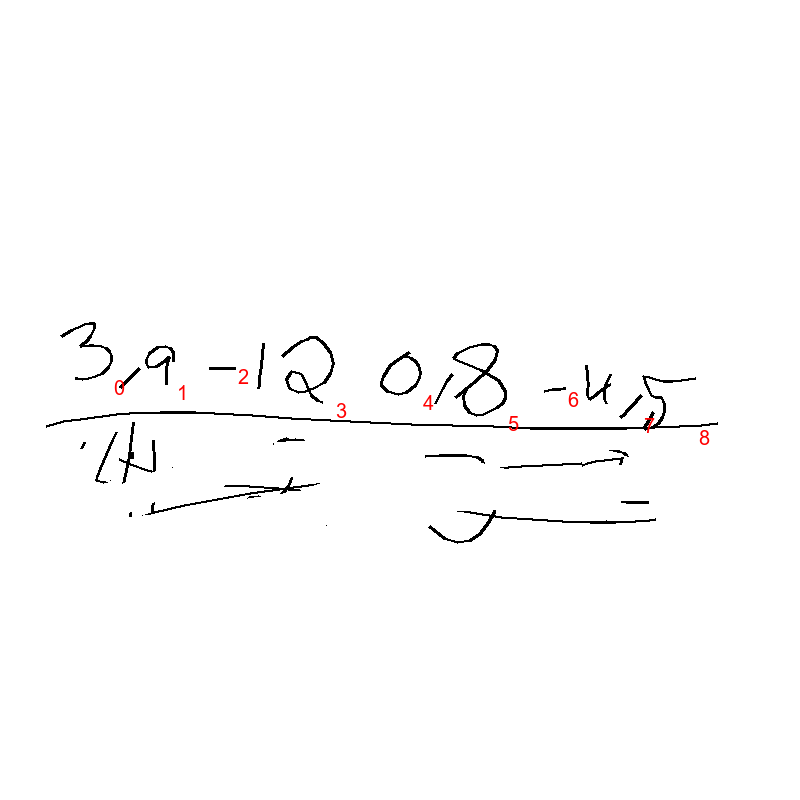 3,9 -12 0,8 -4,5
0 1 2 3 4 5 6 7 8